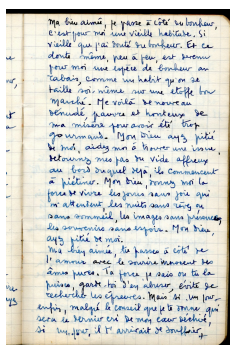 Ma bien aimée, je passe à côté du bonheur,
c'est pour moi une vieille habitude. Si
vieille que j'ai douté du bonheur. Et ce
doute même, peu à peu, est devenu
pour moi une espèce de bonheur au
rabais, comme un habit qu'on se
taille soi même sur une étoffe bon
marché. Me voilà de nouveau
dénudé, pauvre et honteux de
sa misère pour avoir été trop
gourmand. Mon Dieu ayez pitié
de moi, aidez moi à trouver une issue
detournez mes pas du vide affreux
au bord duquel déjà, ils commencent
à piétiner. Mon Dieu, donnez moi la
force de vivre les jours sans joie qui
m'attendent, les nuits sans rêves ou
sans sommeil, les images sans présence,
les souvenirs sans espoir. Mon Dieu,
ayez pitié de moi.
Ma bien aimée, tu passes à côté de
l'amour avec le sourire innocent des
âmes pures. Ta force je sais où tu la
puises, garde toi d'en abuser, évite de
rechercher les épreuves. Mais si un jour,
enfin, malgré le conseil que je te donne qui
sera le dernier cri de mon cœur déchiré,
si un jour, il t'arrivait de souffrir,